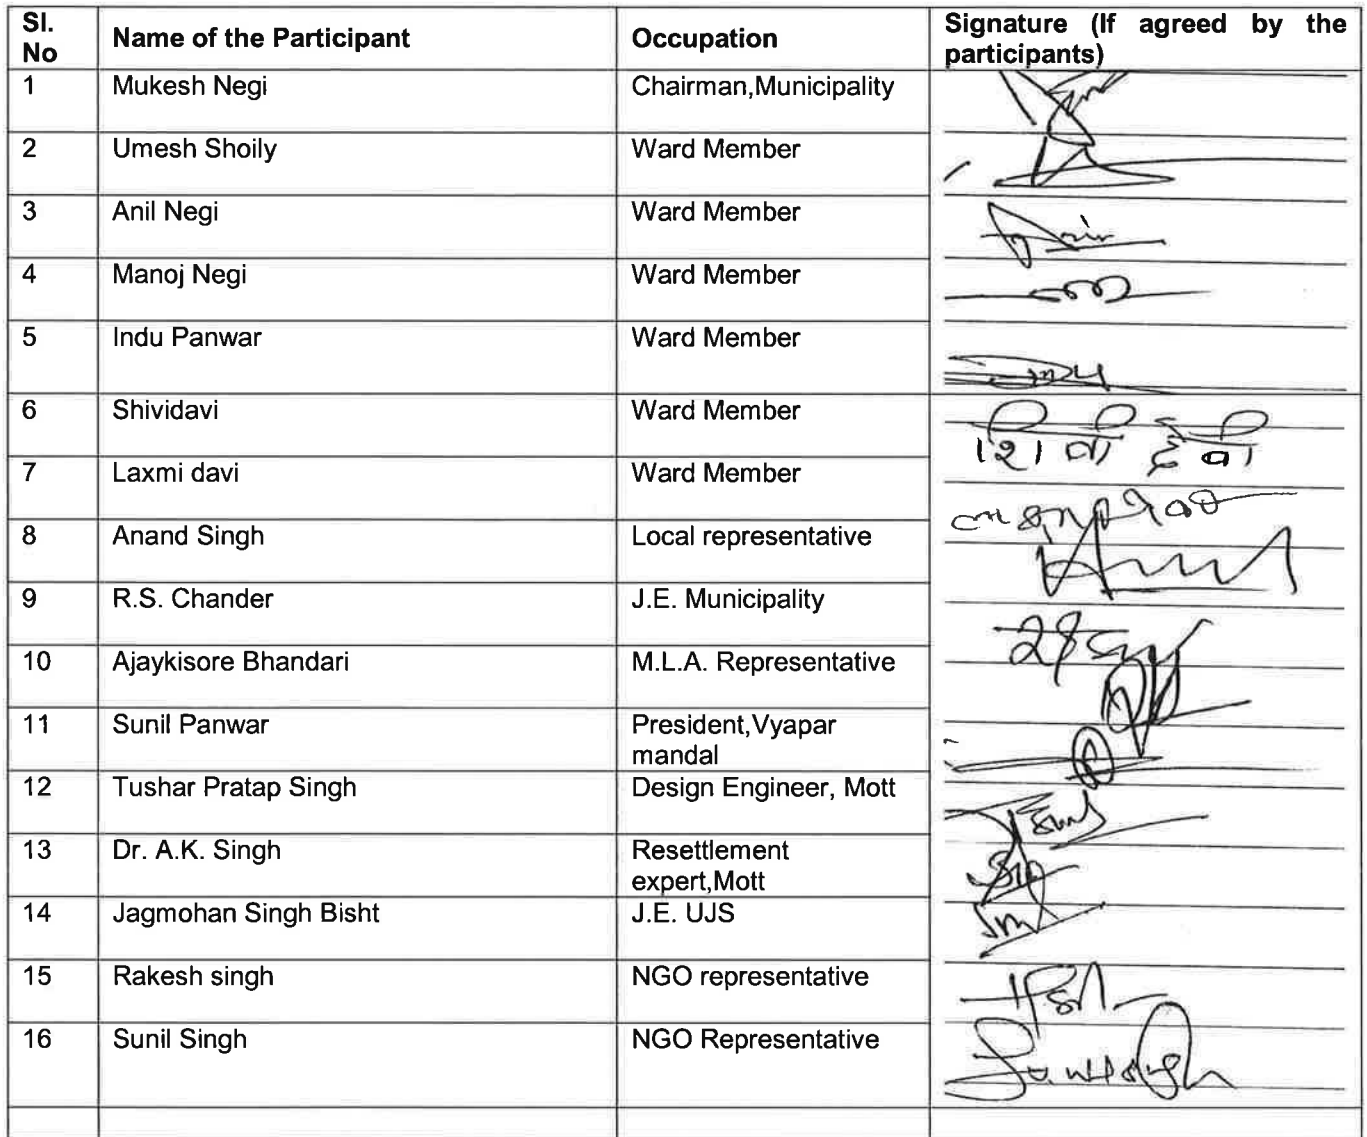 Sl. No Name of the Participant Occupation Signature (If agreed by the participants)
1 Mukesh Negi Chairman,Municipality
2 Umesh Shoily Ward Member
3 Anil Negi Ward Member
4 Manoj Negi Ward Member
5 Indu Panwar Ward Member
6 Shividavi Ward Member शिवी देवी
7 Laxmi davi Ward Member
8 Anand Singh Local representative
9 R.S. Chander J.E. Municipality
10 Ajaykisore Bhandari M.L.A. Representative
11 Sunil Panwar President,Vyapar mandal
12 Tushar Pratap Singh Design Engineer, Mott
13 Dr. A.K. Singh Resettlement expert,Mott
14 Jagmohan Singh Bisht J.E. UJS
15 Rakesh singh NGO representative
16 Sunil Singh NGO Representative